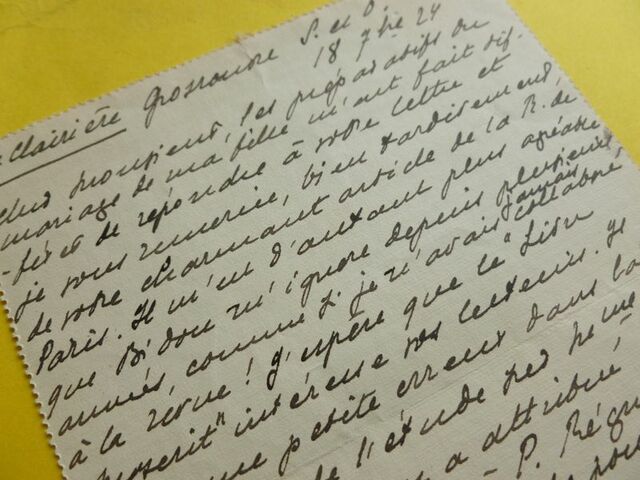 Clairière Grosrouvre S. et O.
18 7bre 24
monsieur, les préparatifs du
mariage de ma fille m'ont fait dif-
-férer de répondre à votre lettre et
je vous remercie, bien tardivement,
de votre charmant article de la R. de
Paris. Il m'est d'autant plus agréable
que Bidou m'ignore depuis plusieurs
années, comme si je n'avais jamais collaboré
à la revue! J'espère que le "Lion
intéresse vos lecteurs. Il
une petite erreur dans la
de l'étude
a attribué
- P. Régn